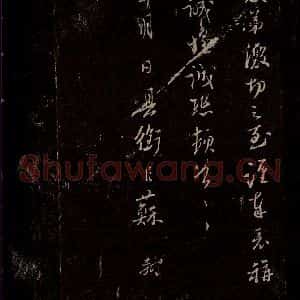 激切之至謹奉表稱
誠惶誠恐頓首
日具銜蘇軾
Shufawang.CN